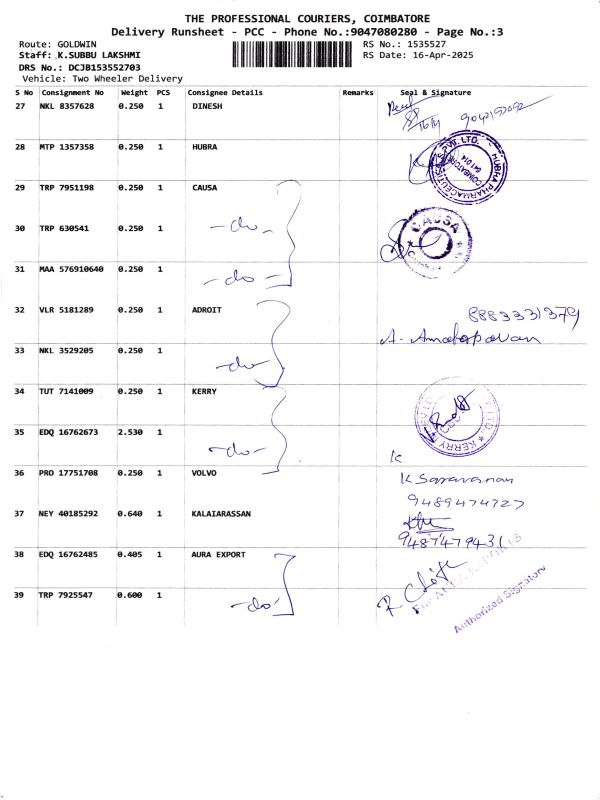 THE PROFESSIONAL COURIERS, COIMBATORE
Delivery Runsheet - PCC - Phone No.:9047080280 - Page No.:3
Route: GOLDWIN RS No.: 1535527
Staff: K.SUBBU LAKSHMI RS Date: 16-Apr-2025
DRS No.: DCJB153552703
Vehicle: Two Wheeler Delivery
S No Consignment No Weight PCS Consignee Details Remarks Seal & Signature
27 NKL 8357628 0.250 1 DINESH
28 MTP 1357358 0.250 1 HUBRA
HUBRA PHARMACEUTICALS PVT. LTD. COIMBATORE 641 014
29 TRP 7951198 0.250 1 CAUSA
30 TRP 630541 0.250 1 -do- CAUSA
31 MAA 576910640 0.250 1 -do-
32 VLR 5181289 0.250 1 ADROIT 8883331379
33 NKL 3529205 0.250 1 -do-
34 TUT 7141009 0.250 1 KERRY
35 EDQ 16762673 2.530 1 -do- KERRY
K
36 PRO 17751708 0.250 1 VOLVO K Saravanan
9489474727
37 NEY 40185292 0.640 1 KALAIARASSAN
9487479431
38 EDQ 16762485 0.405 1 AURA EXPORT
39 TRP 7925547 0.600 1 -do-
Authorized Signatory